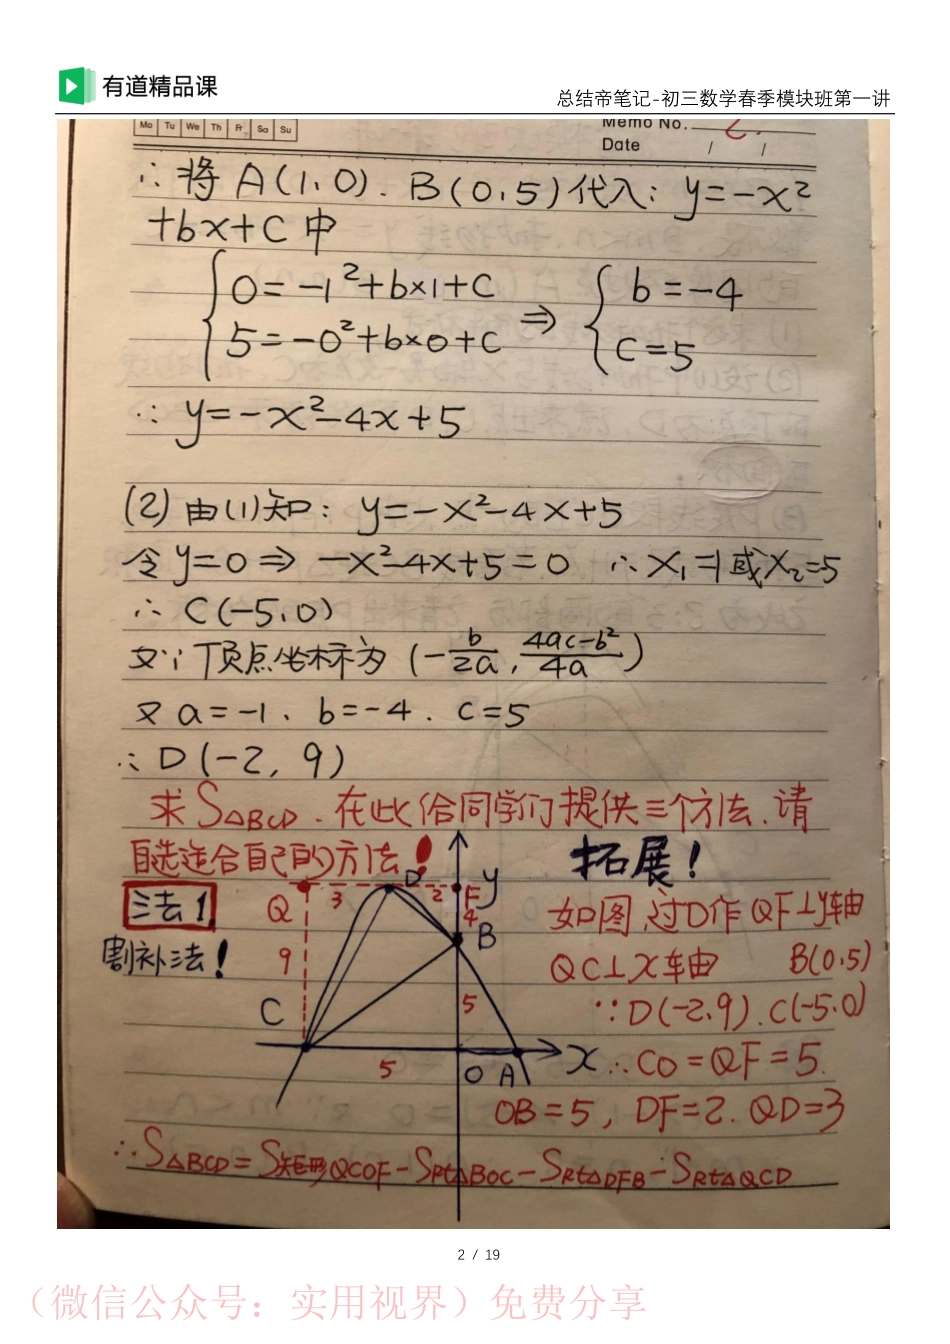 有道精品课
总结帝笔记-初三数学春季模块班第一讲
Mo Tu We Th Fr Sa Su
Memo No.
Date / /
∴将 A(1、0). B(0、5)代入: y=-x²
+bx+c 中
{0=-1²+b×1+c ⇒ {b=-4
5=-0²+b×0+c c=5
∴ y=-x²-4x+5
(2) 由(1)知: y=-x²-4x+5
令 y=0 ⇒ -x²-4x+5=0 ∴ x₁=1或x₂=-5
∴ C(-5、0)
又∵顶点坐标为 (-b/2a, 4ac-b²/4a)
又 a=-1、b=-4. c=5
∴ D(-2, 9)
求S△BCD. 在此给同学们提供三个方法.请
自选适合自己的方法!
拓展!
方法1.
割补法!
Q 3 D 2 F y
4
B
9
5
C
5 O A x
如图,过D作QF⊥y轴
QC⊥x轴 B(0,5)
∵D(-2、9). C(-5、0)
∴CO=QF=5.
OB=5, DF=2. QD=3
∴S△BCD=S矩形QCOF-SRt△BOC-SRt△DFB-SRt△QCD
2 / 19
（微信公众号：实用视界）免费分享